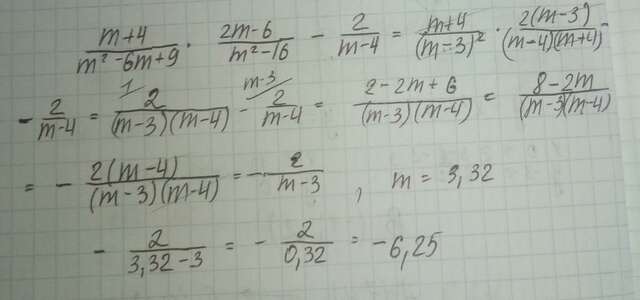 (m+4)/(m²-6m+9) · (2m-6)/(m²-16) - 2/(m-4) = (m+4)/(m-3)² · 2(m-3)/((m-4)(m+4)) -
- 2/(m-4) = 2/((m-3)(m-4)) (1/ - 2/(m-4) (m-3/ = (2-2m+6)/((m-3)(m-4)) = (8-2m)/((m-3)(m-4))
= - 2(m-4)/((m-3)(m-4)) = - 2/(m-3) , m = 3,32
- 2/(3,32-3) = - 2/0,32 = -6,25